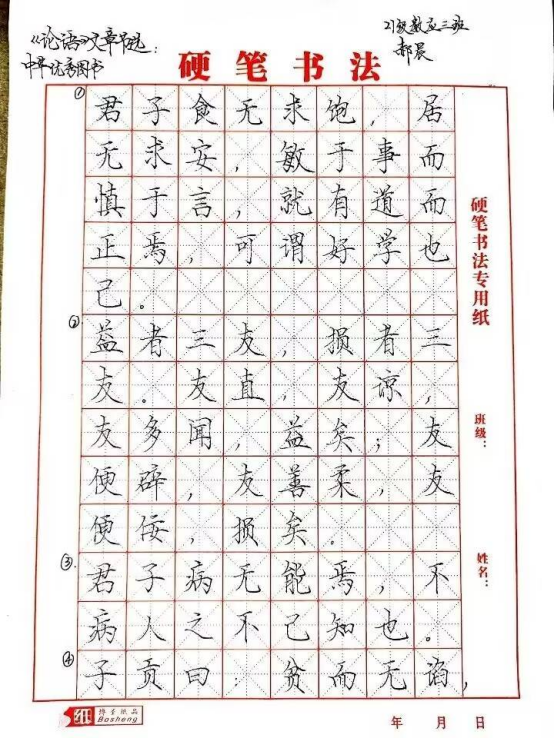 《论语》文章节选：
中华优秀图书
21级数应三班
郝晨
硬笔书法
① 君子食无求饱，居
无求安，敏于事而
慎于言，就有道而
正焉，可谓好学也
己。
② 益者三友，损者三
友。友直，友谅，
友多闻，益矣；友
便辟，友善柔，友
便佞，损矣。
③. 君子病无能焉，不
病人之不己知也。
④ 子贡曰：贫而无谄，
硬笔书法专用纸
班级：
姓名：
纸 博圣纸品
Bosheng
年 月 日